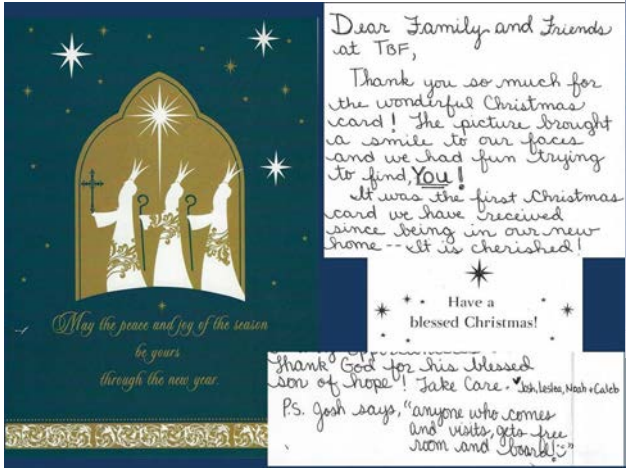 May the peace and joy of the season
be yours
through the new year.
Dear Family and Friends
at TBF,
Thank you so much for
the wonderful Christmas
card! The picture brought
a smile to our faces
and we had fun trying
to find, You!
It was the first Christmas
card we have received
since being in our new
home -- It is cherished!
Have a
blessed Christmas!
Thank God for his blessed
son of hope! Take Care. ♥Josh, Leslee, Noah + Caleb
P.S. Josh says, "anyone who comes
and visits, gets free
room and board!"